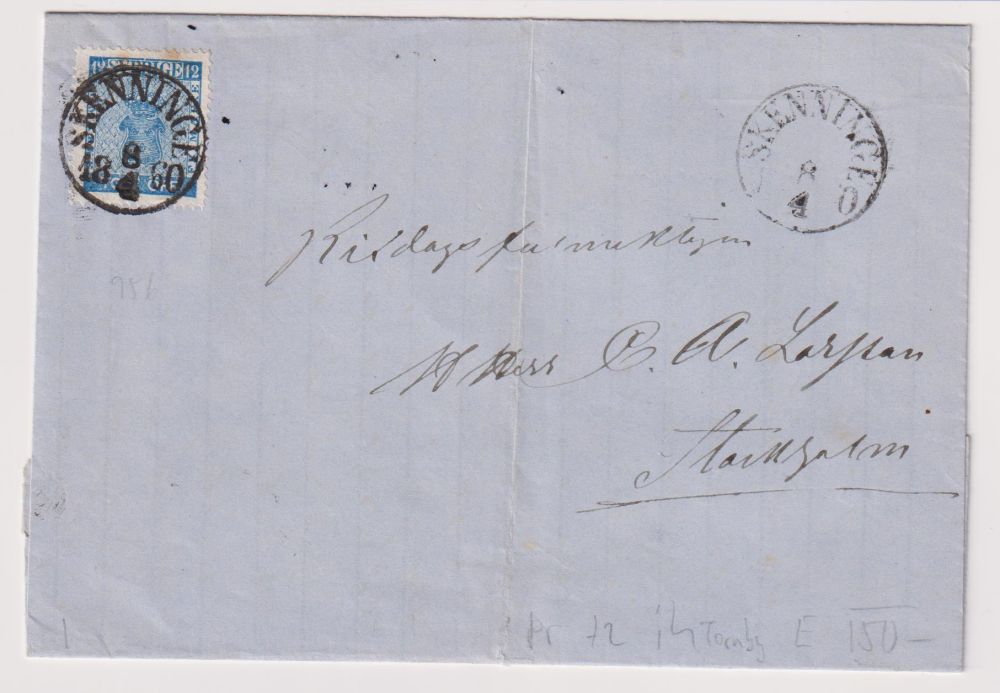 12 SVERIGE 12
SKENNINGE
8
18 60
4
SKENNINGE
8
4 0
Riksdagsfullmäktigen
H Herr C. A. Larsson
Stockholm
956
Pr 72 Tornby E 150-